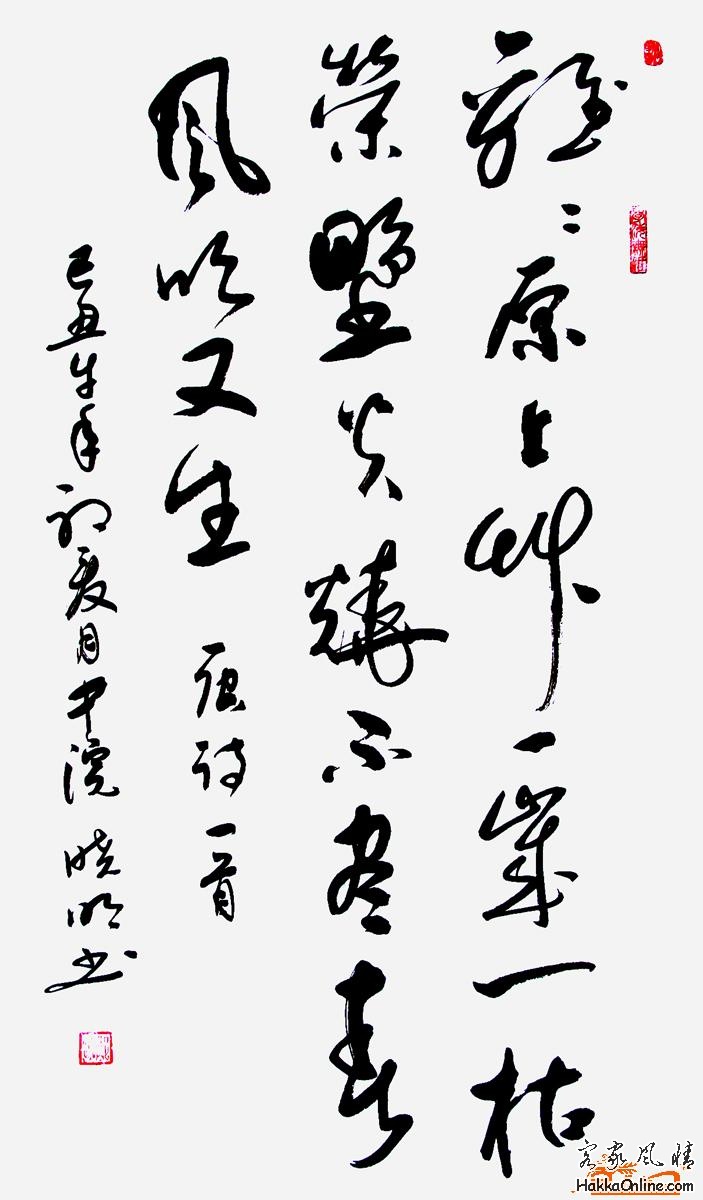 離〻原上草一歲一枯
榮野火燒不盡春
風吹又生 唐詩一首
己丑牛年初夏月中浣 曉明書
客家風情
HakkaOnline.com